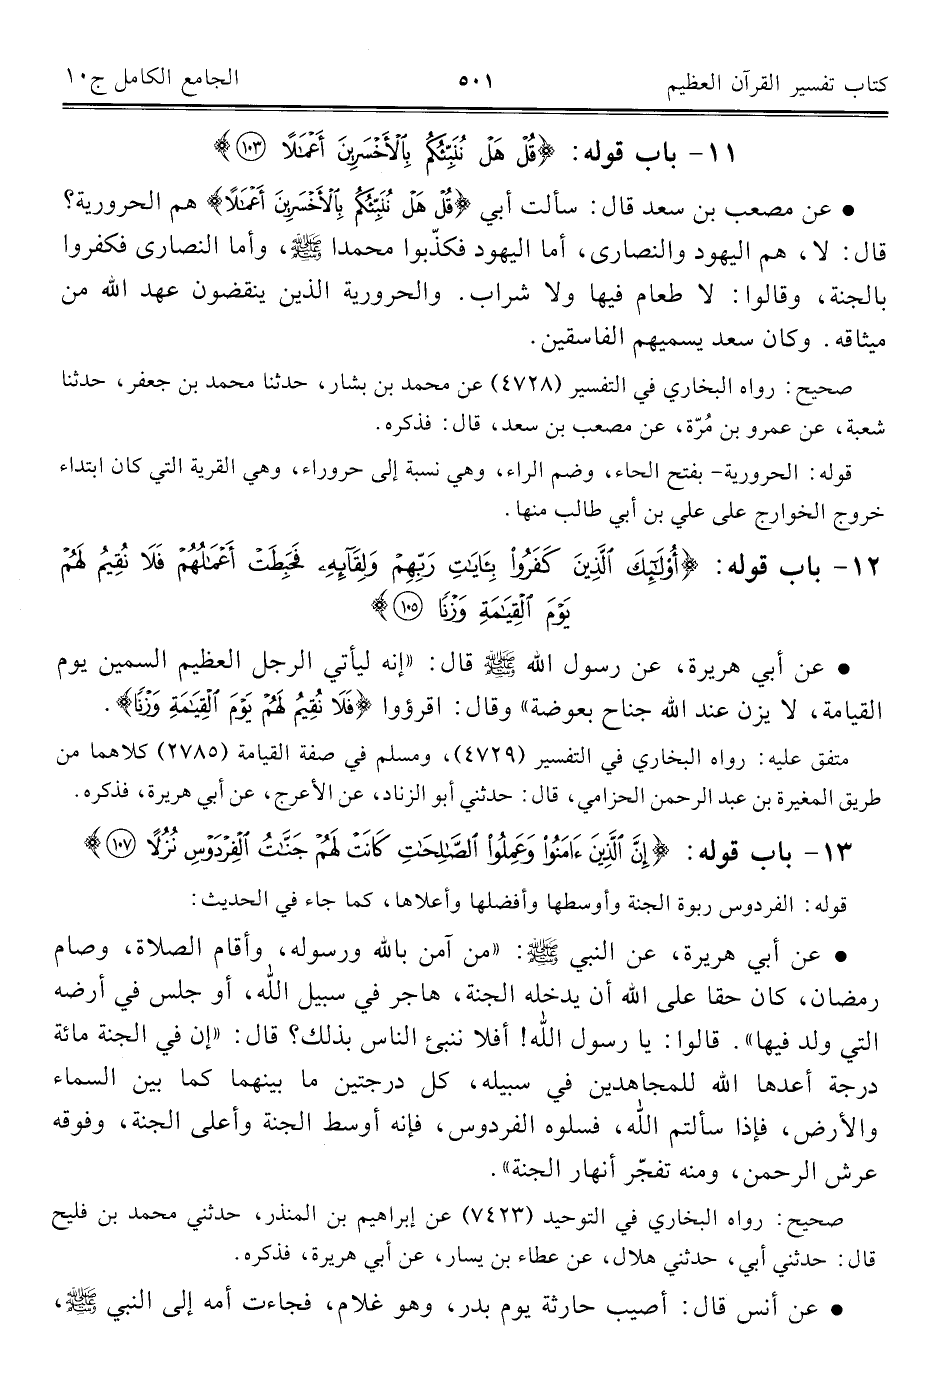 كتاب تفسير القرآن العظيم ٥٠١ الجامع الكامل ج١٠
١١- باب قوله: ﴿قُلْ هَلْ نُنَبِّئُكُم بِالْأَخْسَرِينَ أَعْمَٰلًا ١٠٣﴾
• عن مصعب بن سعد قال: سألت أبي ﴿قُلْ هَلْ نُنَبِّئُكُم بِالْأَخْسَرِينَ أَعْمَٰلًا﴾ هم الحرورية؟
قال: لا، هم اليهود والنصارى، أما اليهود فكذّبوا محمدا ﷺ، وأما النصارى فكفروا
بالجنة، وقالوا: لا طعام فيها ولا شراب. والحرورية الذين ينقضون عهد الله من
ميثاقه. وكان سعد يسميهم الفاسقين.
صحيح: رواه البخاري في التفسير (٤٧٢٨) عن محمد بن بشار، حدثنا محمد بن جعفر، حدثنا
شعبة، عن عمرو بن مُرّة، عن مصعب بن سعد، قال: فذكره.
قوله: الحرورية- بفتح الحاء، وضم الراء، وهي نسبة إلى حروراء، وهي القرية التي كان ابتداء
خروج الخوارج على علي بن أبي طالب منها.
١٢- باب قوله: ﴿أُوْلَٰٓئِكَ ٱلَّذِينَ كَفَرُوا۟ بِـَٔايَٰتِ رَبِّهِمْ وَلِقَآئِهِۦ فَحَبِطَتْ أَعْمَٰلُهُمْ فَلَا نُقِيمُ لَهُمْ
يَوْمَ ٱلْقِيَٰمَةِ وَزْنًا ١٠٥﴾
• عن أبي هريرة، عن رسول الله ﷺ قال: «إنه ليأتي الرجل العظيم السمين يوم
القيامة، لا يزن عند الله جناح بعوضة» وقال: اقرؤوا ﴿فَلَا نُقِيمُ لَهُمْ يَوْمَ ٱلْقِيَٰمَةِ وَزْنًا﴾.
متفق عليه: رواه البخاري في التفسير (٤٧٢٩)، ومسلم في صفة القيامة (٢٧٨٥) كلاهما من
طريق المغيرة بن عبد الرحمن الحزامي، قال: حدثني أبو الزناد، عن الأعرج، عن أبي هريرة، فذكره.
١٣- باب قوله: ﴿إِنَّ ٱلَّذِينَ ءَامَنُوا۟ وَعَمِلُوا۟ ٱلصَّٰلِحَٰتِ كَانَتْ لَهُمْ جَنَّٰتُ ٱلْفِرْدَوْسِ نُزُلًا ١٠٧﴾
قوله: الفردوس ربوة الجنة وأوسطها وأفضلها وأعلاها، كما جاء في الحديث:
• عن أبي هريرة، عن النبي ﷺ: «من آمن بالله ورسوله، وأقام الصلاة، وصام
رمضان، كان حقا على الله أن يدخله الجنة، هاجر في سبيل الله، أو جلس في أرضه
التي ولد فيها». قالوا: يا رسول الله! أفلا ننبئ الناس بذلك؟ قال: «إن في الجنة مائة
درجة أعدها الله للمجاهدين في سبيله، كل درجتين ما بينهما كما بين السماء
والأرض، فإذا سألتم الله، فسلوه الفردوس، فإنه أوسط الجنة وأعلى الجنة، وفوقه
عرش الرحمن، ومنه تفجّر أنهار الجنة».
صحيح: رواه البخاري في التوحيد (٧٤٢٣) عن إبراهيم بن المنذر، حدثني محمد بن فليح
قال: حدثني أبي، حدثني هلال، عن عطاء بن يسار، عن أبي هريرة، فذكره.
• عن أنس قال: أصيب حارثة يوم بدر، وهو غلام، فجاءت أمه إلى النبي ﷺ،